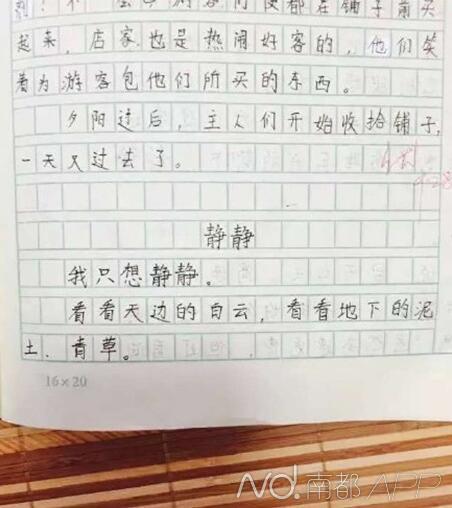 们便都在铺子前买
起来，店家也是热闹好客的，他们笑
着为游客包他们所买的东西。
夕阳过后，主人们开始收拾铺子，
一天又过去了。
静静
我只想静静。
看看天边的白云，看看地下的泥
土、青草。
16×20
ND.南都APP